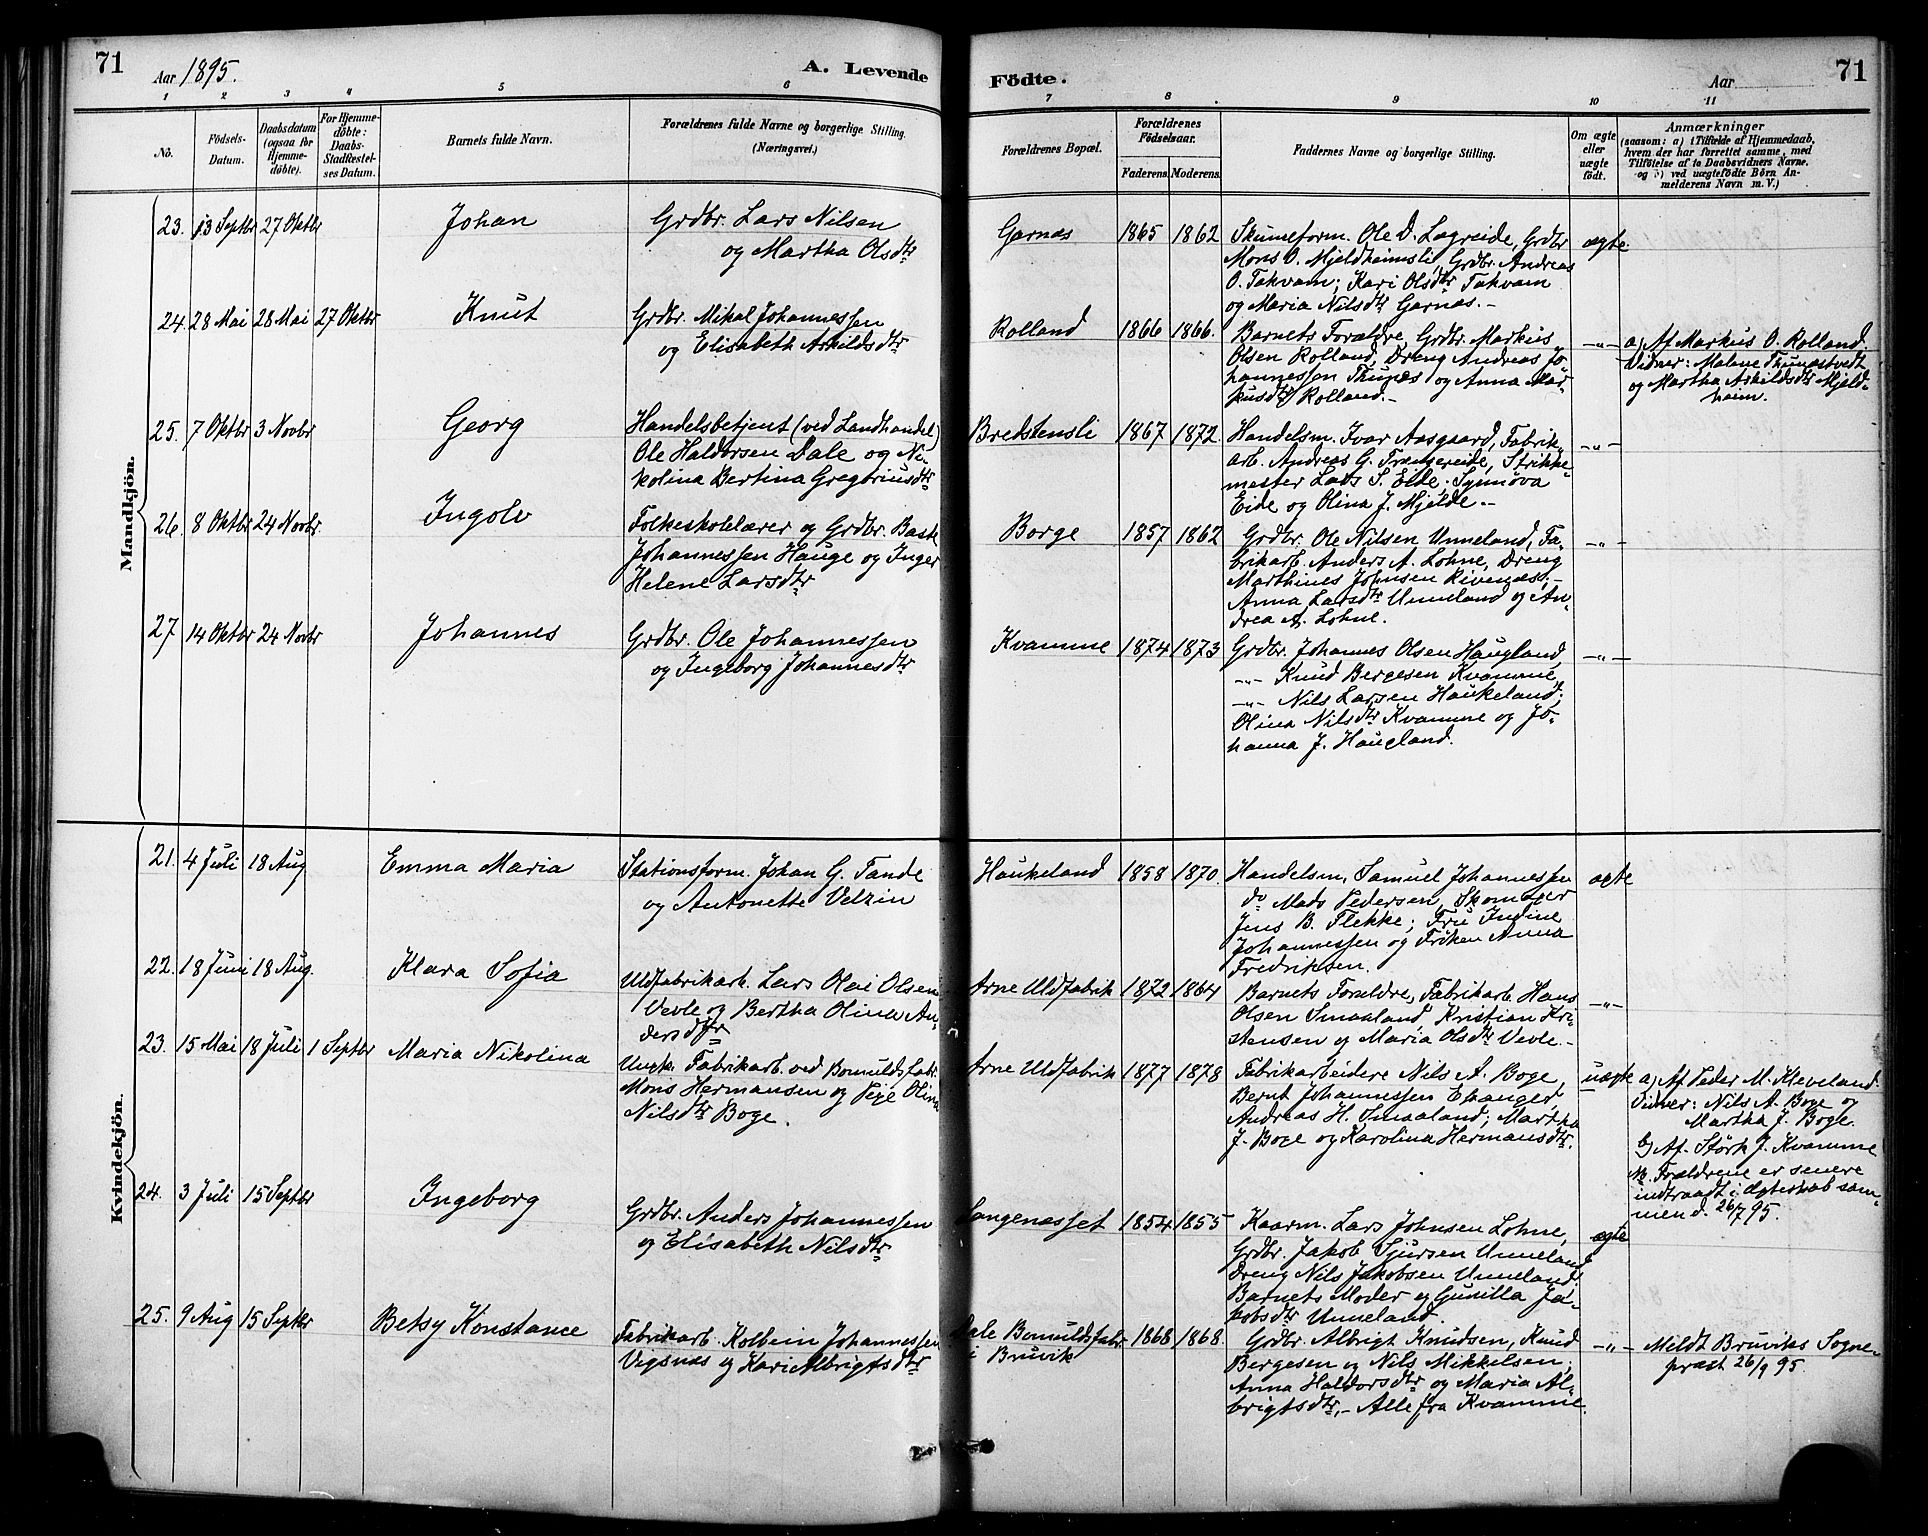 71
Aar 1895.
A. Levende
Födte.
Aar
71
1 2 3 4 5 6 7 8 9 10 11
No.
Födsels-
Datum.
Daabsdatum
(ogsaa for
Hjemme-
døbte).
For Hjemme-
döbte:
Daabs-
Stadfæstel-
ses Datum.
Barnets fulde Navn.
Forældrenes fulde Navne og borgerlige Stilling.
(Næringsvei.)
Forældrenes Bopæl.
Forældrenes
Födselsaar.
Faderens. Moderens.
Faddernes Navne og borgerlige Stilling.
Om ægte
eller
uægte
født.
Anmærkninger
(saasom: a) i Tilfælde af Hjemmedaab,
hvem der har forrettet samme, med
Tilföielse af to Daabsvidners Navne.
og b) ved uægtefödte Börn An-
melderens Navn m. V.)
Mandkjön.
23. 13 Septbr 27 Oktbr
Johan
Grdbr. Lars Nilsen
og Martha Olsdtr
Garnæs
1865 1862
Skumeform. Ole D. Lægreide, Grdbr
Mons O. Mjeldheimsli, Grdbr. Andreas
O. Takvam; Kari Olsdtr Takvam
og Maria Nilsdtr Garnæs.-
ægte
24. 28 Mai 28 Mai 27 Oktbr
Knut
Grdbr. Mikal Johannessen
og Elisabeth Arkildsdtr
Rolland
1866 1866.
Barnets Forældre, Grdbr. Markus
Olsen Rolland, Dreng Andreas Jo-
hannessen Thunæs og Anna Mar-
kusdtr Rolland.-
-"-
a) Af Markus O. Rolland.
Vidner: Malene Thunæstvedt
og Martha Arkildsdtr Mjeld-
heim.
25. 7 Oktbr 3 Novbr
Georg
Handelsbetjent (ved Landhandel)
Ole Haldorsen Dale og Ni-
kolina Bertina Gregoriusdtr
Bredstensli
1867 1872.
Handelsm. Ivar Aasgaard, Fabrik-
arb. Andreas G. Trængereide, Strikke-
mester Lars S. Eide; Synnöva
Eide og Olina J. Mjelde.-
-"-
26. 8 Oktbr 24 Novbr.
Ingolv
Folkeskolelærer og Grdbr. Baste
Johannessen Hauge og Inger
Helene Larsdtr
Borge
1857 1862
Grdbr. Ole Nilsen Unneland, Fa-
brikarb. Anders A. Lohne, Dreng
Marthines Johnsen Rivenæs;-
Anna Larsdtr Unneland og An-
drea A. Lohne.
-"-
27 14 Oktbr 24 Novbr
Johannes
Grdbr. Ole Johannessen
og Ingeborg Johannesdtr
Kvamme
1874 1873
Grdbr. Johannes Olsen Haugland,
-"- Knud Bergesen Kvamme,
-"- Nils Larsen Haukeland;
Olina Nilsdtr Kvamme og Jo-
hanna J. Haugland.
-"-
Kvindekjön.
21. 4 Juli 18 Aug
Emma Maria
Stationsform. Johan G. Tande
og Antonette Velzin
Haukeland
1858 1870.
Handelsm. Samuel Johannessen
do Mads Pedersen, Skomager
Jens B. Flekke; Fru Indine
Johannessen og Fröken Anna
Fredriksen.
ægte
22. 18 Juni 18 Aug.
Klara Sofia
Uldfabrikarb. Lars Olai Olsen
Vevle og Bertha Olina An-
dersdtr
Arne Uldfabrik
1872 1864
Barnets Forældre, Fabrikarb. Hans
Olsen Smaaland, Kristian Kri-
stensen og Maria Olsdtr Vevle.-
-"-
23. 15 Mai 18 Juli 1 Septbr
Maria Nikolina
Ungk. Fabrikarb. ved Bomuldsfabr.
Mons Hermansen og Pige Olina
Nilsdtr Boge.
Arne Uldfabrik
1877 1878
Fabrikarbeidere Nils A. Boge,
Bernt Johannessen Espanger
Andreas H. Smaaland; Martha
J. Boge og Karolina Hermansdtr.
uægte
a) Af Peder M. Kleveland.
Vidner: Nils A. Boge og
Martha J. Boge.
b) Af Störk J. Kvamme
M. Forældrene er senere
indtraadt i Ægteskab sam-
men d. 26/7 95.
24. 3 Juli 15 Septbr
Ingeborg
Grdbr. Anders Johannessen
og Elisabeth Nilsdtr
Langenæsset
1854 1855
Kaarm. Lars Johnsen Lohne,
Grdbr. Jakob Sjursen Unneland,
Dreng Nils Jakobsen Unneland;
Barnets Moder og Gunilla Ja-
kobsdtr Unneland.
ægte
25. 9 Aug 15 Septbr
Betsy Konstance
Fabrikarb. Kolbein Johannessen
Vigsnæs og Kari Albrigtsdtr
Dale Bomuldsfabr.
i Bruvik
1868 1868.
Grdbr. Albrigt Knudsen, Knud
Bergesen og Nils Mikkelsen;
Anna Haldorsdtr og Maria Al-
brigtsdtr,- Alle fra Kvamme.
-"-
Meldt Bruviks Sogne-
præst 26/9 95.